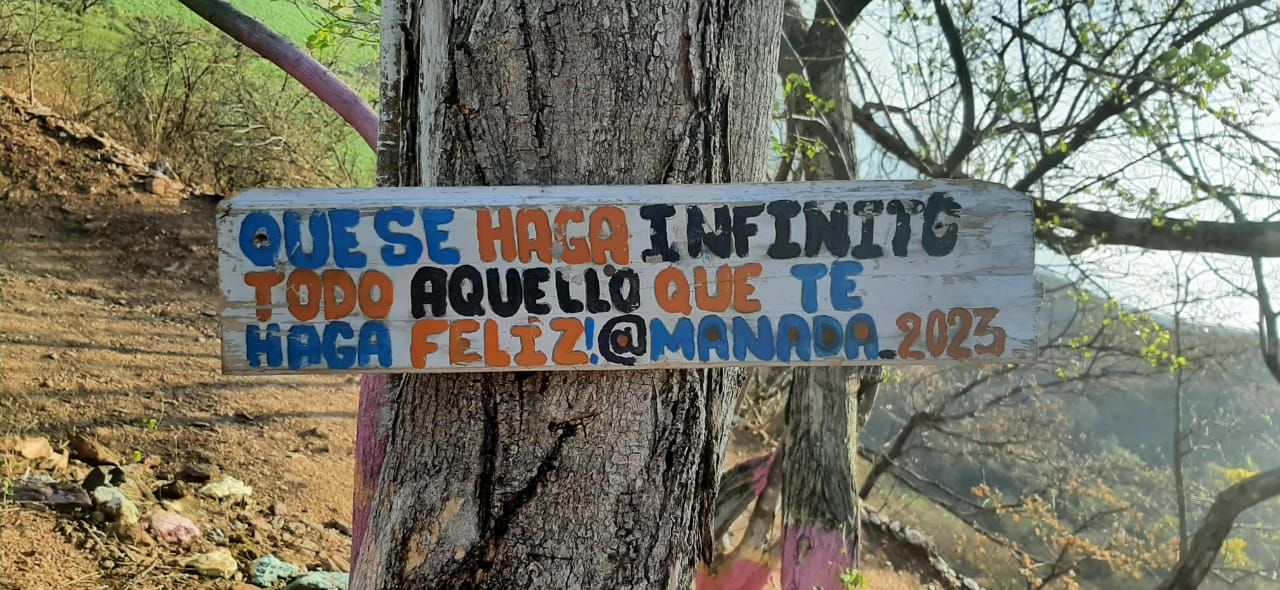 QUE SE HAGA INFINITO
TODO AQUELLO QUE TE
HAGA FELIZ! @MANADA_2023